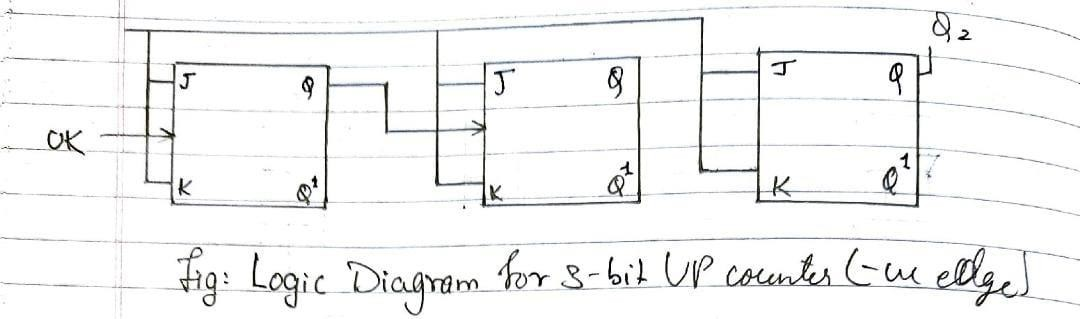 Q2
J Q J Q J Q
CK
K Q1 K Q1 K Q1
Fig: Logic Diagram for 3-bit UP counter (-ve edge)